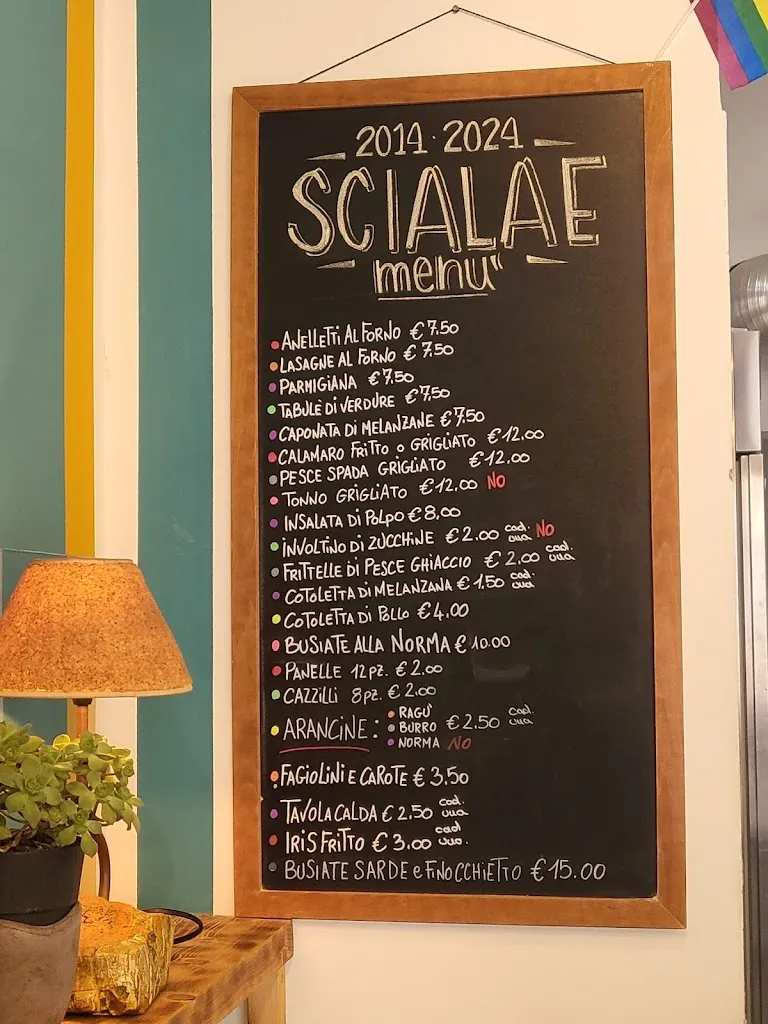 2014·2024
SCIALAE
menu"
ANELLETTI AL FORNO € 7,50
LASAGNE AL FORNO € 7,50
PARMIGIANA € 7,50
TABULÈ DI VERDURE € 7,50
CAPONATA DI MELANZANE € 7,50
CALAMARO FRITTO o GRIGLIATO € 12.00
PESCE SPADA GRIGLIATO € 12.00
TONNO GRIGLIATO € 12.00 NO
INSALATA DI POLPO € 8,00
INVOLTINO DI ZUCCHINE € 2.00 cad. una NO
FRITTELLE DI PESCE GHIACCIO € 2,00 cad. una
COTOLETTA DI MELANZANA € 1,50 cad. una
COTOLETTA DI POLLO € 4.00
BUSIATE ALLA NORMA € 10.00
PANELLE 12 PZ. € 2.00
CAZZILLI 8 PZ. € 2.00
ARANCINE: RAGU'
BURRO € 2.50 cad. una
NORMA NO
FAGIOLINI E CAROTE € 3.50
TAVOLA CALDA € 2.50 cad. una
IRIS FRITTO € 3.00 cad uno.
BUSIATE SARDE e FINOCCHIETTO € 15.00